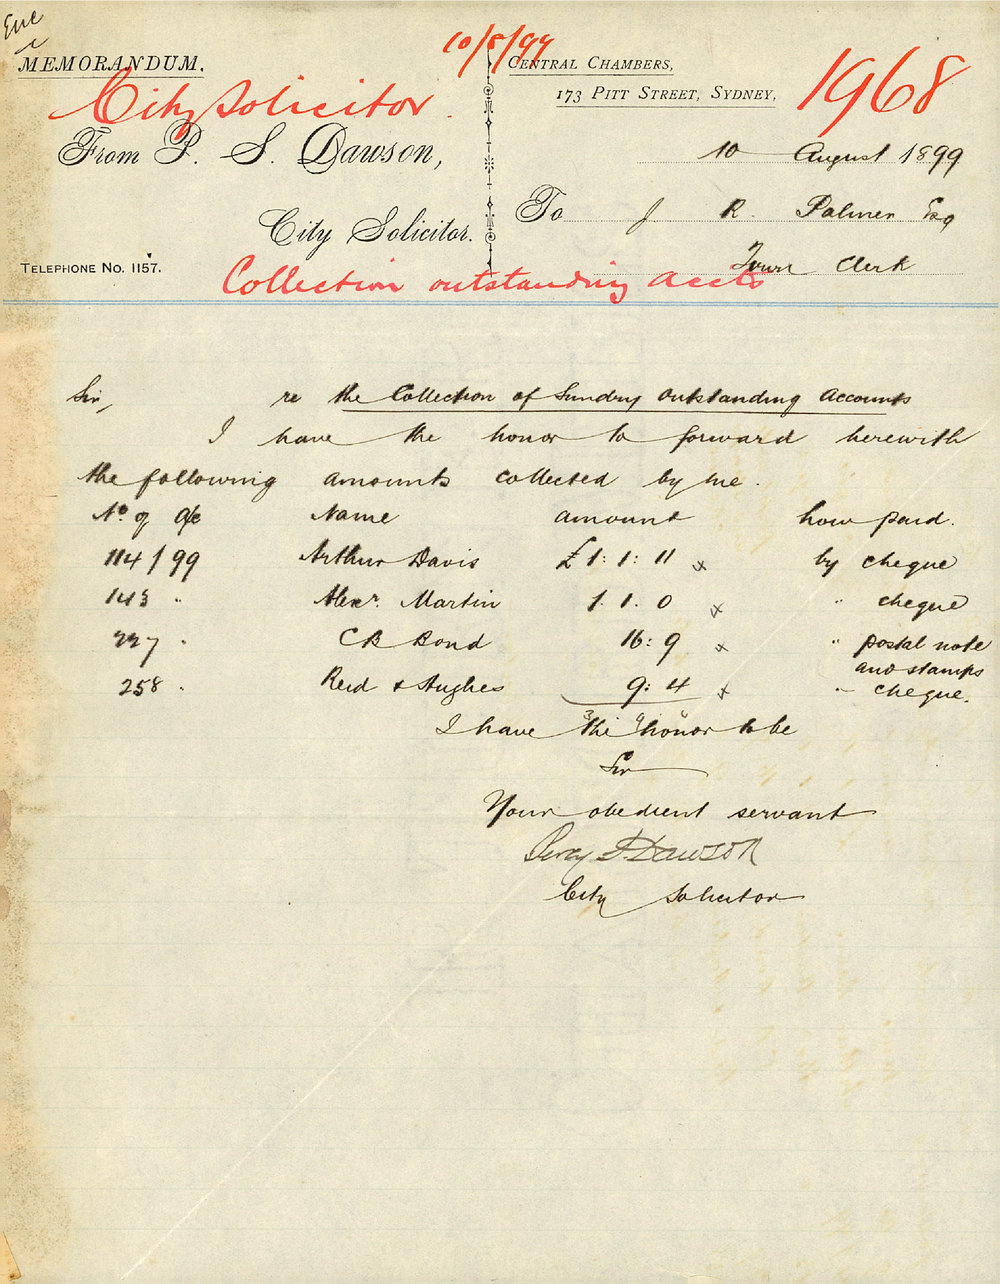 Enc
10/8/99
MEMORANDUM.
CENTRAL CHAMBERS,
173 PITT STREET, SYDNEY,
1968
City Solicitor.
From P. S. Dawson,
10 August 1899
To J R. Palmer Esq
City Solicitor.
Town Clerk
TELEPHONE No. 1157.
Collection outstanding accts
Sir, re the Collection of Sundry Outstanding Accounts
I have the honor to forward herewith
the following amounts collected by me.
No. of a/c Name amount how paid.
114/99 Arthur Davis £1:1:11 x by cheque
143 " Alexr. Martin 1.1.0 x " cheque
227 " C B Bond 16:9 x " postal note
and stamps
258 " Reid & Hughes 9:4 x " cheque.
3 9 "
I have the honor to be
Sir
Your obedient servant
Percy S Dawson
City Solicitor